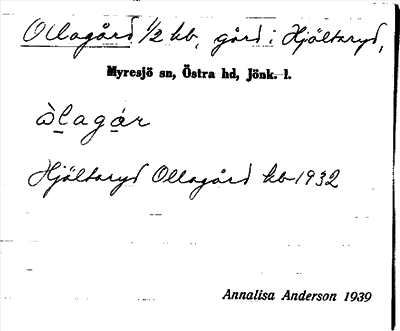 Ollagård 1/2 kb, gård i Hjältaryd,
Myresjö sn, Östra hd, Jönk. l.
òlagár
Hjältaryd Ollagård kb 1932
Annalisa Anderson 1939